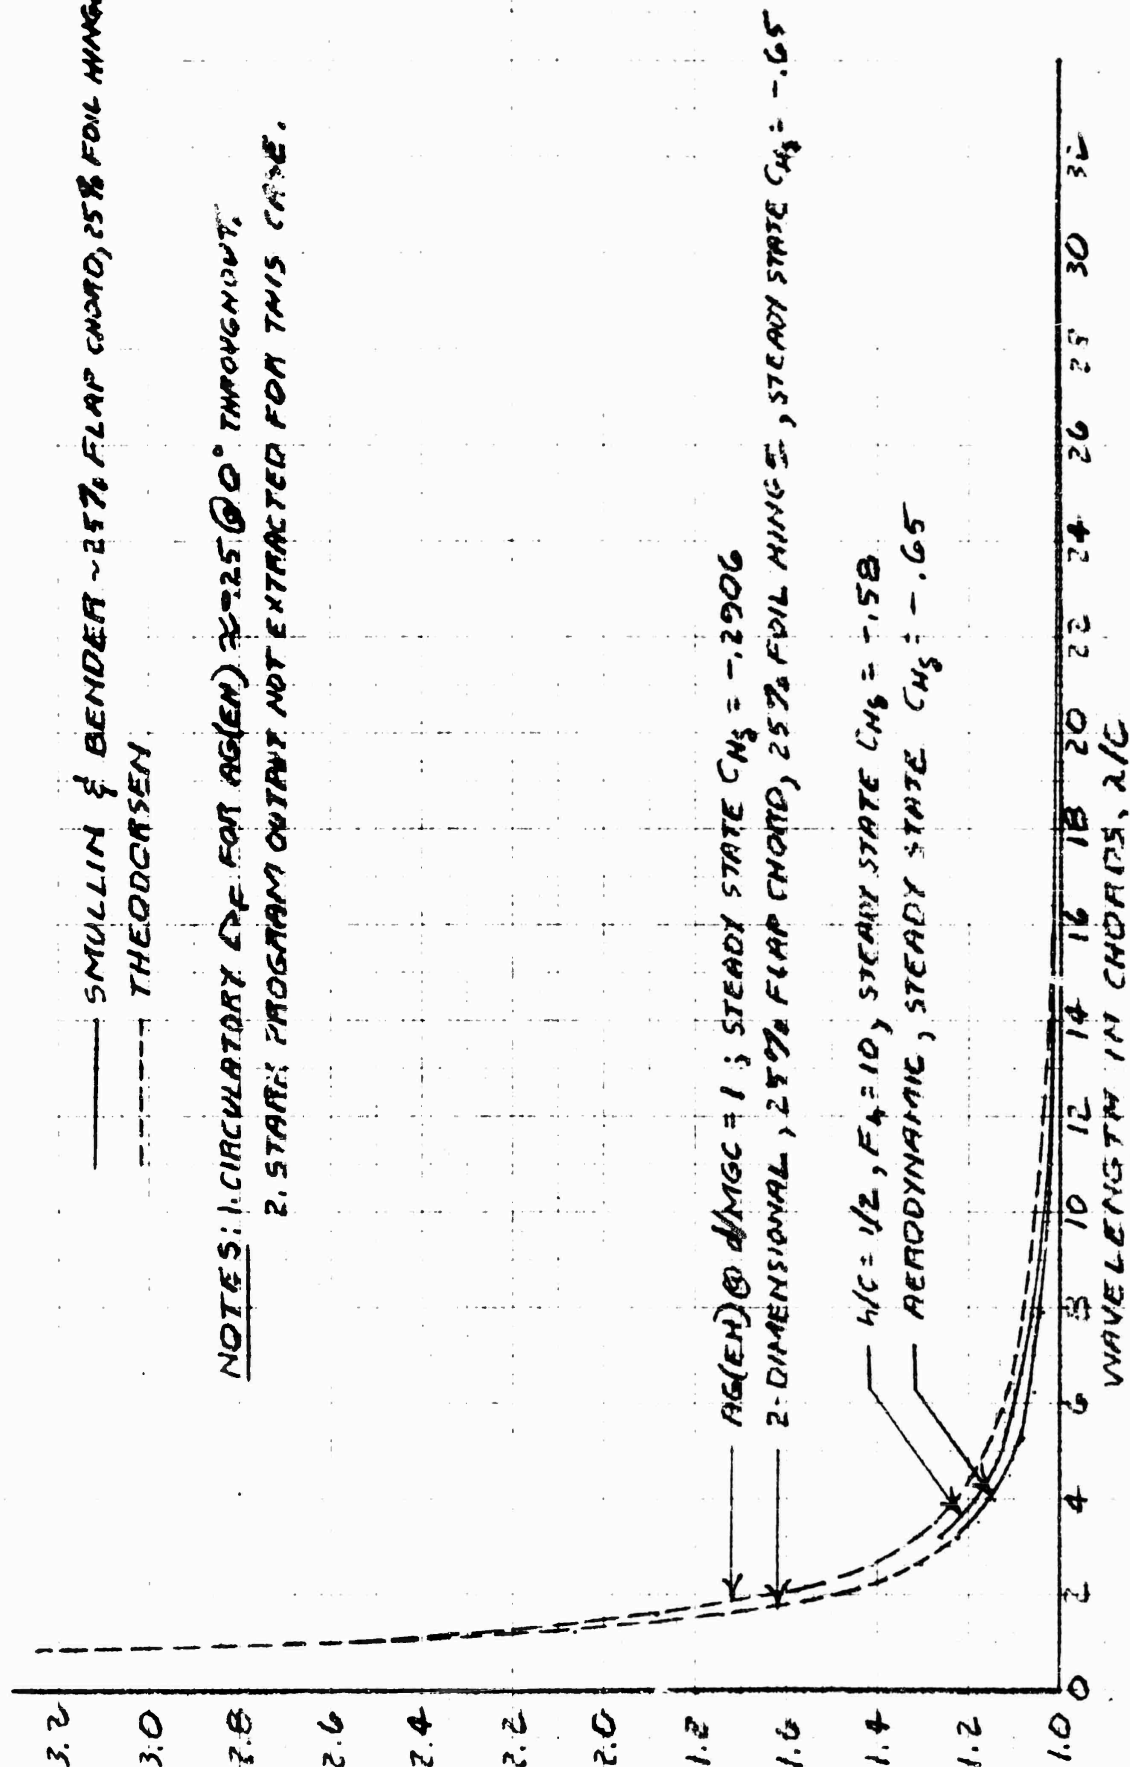 —— SMULLIN & BENDER ~25% FLAP CHORD, 25% FOIL HINGE
----- THEODORSEN
NOTES: 1. CIRCULATORY FOR AG(EH) ≈ .25 @ 0° THROUGHOUT.
2. STARK PROGRAM OUTPUT NOT EXTRACTED FOR THIS CASE.
AG(EH) @ d/MGC = 1 ; STEADY STATE C_Hδ = -.2906
2-DIMENSIONAL, 25% FLAP CHORD, 25% FOIL HINGE, STEADY STATE C_Hδ = -.65
h/c = 1/2, F_h = 10, STEADY STATE C_Hδ = -.58
AERODYNAMIC, STEADY STATE C_Hδ = -.65
3.2
3.0
2.8
2.6
2.4
2.2
2.0
1.6
1.4
1.2
1.0
0 2 4 6 8 10 12 14 16 18 20 22 24 26 28 30 32
WAVELENGTH IN CHORDS, λ/C